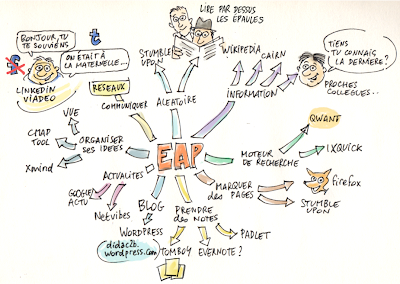 LIRE PAR DESSUS
LES EPAULES
BONJOUR, TU
TE SOUVIENS
t
ON ETAIT À
LA MATERNELLE...
LINKEDIN
VIADEO
RESEAUX
COMMUNIQUER
STUMBLE
UPON
ALEATOIRE
WIKIPEDIA
CAIRN
INFORMATION
TIENS
TU CONNAIS
LA DERNIERE?
PROCHES
COLLEGUES..
VUE
CMAP
TOOL
Xmind
ORGANISER
SES IDEES
EAP
QWANT
MOTEUR
DE RECHERCHE
IXQUICK
ACTUALITES
GOOGLE
ACTU
Netvibes
MARQUER
des PAGES
firefox
STUMBLE
UPON
BLOG
WORDPRESS
didac2b.
wordpress.com
PRENDRE
des NOTES
TOMBOY
EVERNOTE?
PADLET